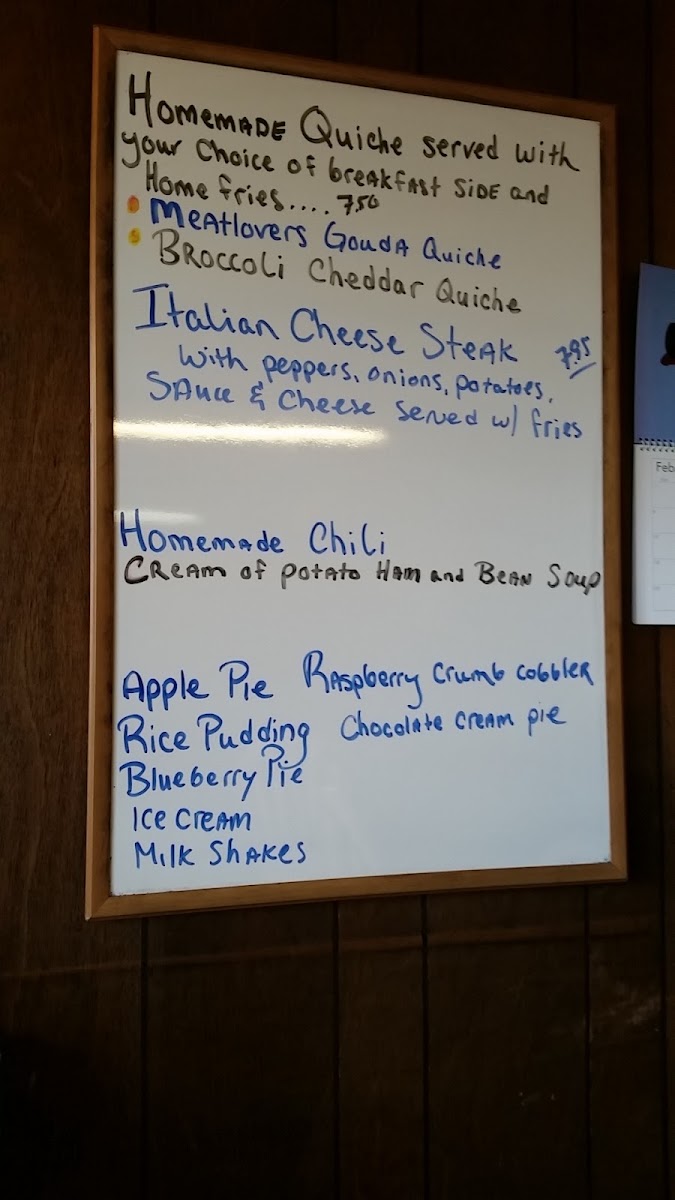 Homemade Quiche served with
your choice of breakfast side and
Home fries.... 7.50
• Meatlovers Gouda Quiche
• Broccoli Cheddar Quiche
Italian Cheese Steak 7.95
with peppers, onions, potatoes,
Sauce & Cheese served w/ fries
Homemade Chili
Cream of potato Ham and Bean Soup
Apple Pie Raspberry crumb cobbler
Rice Pudding Chocolate cream pie
Blueberry Pie
Ice cream
Milk Shakes
Feb